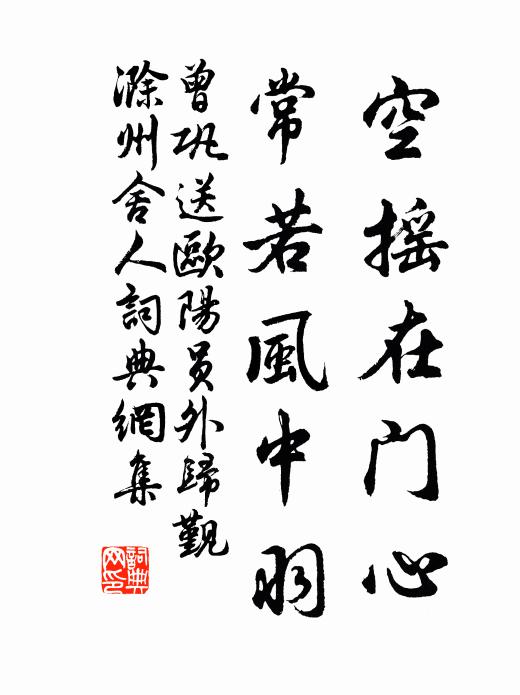 空摇在门心
常若風中羽
曾巩送歐陽员外歸觐
滁州舍人詞典網集
詞典网印